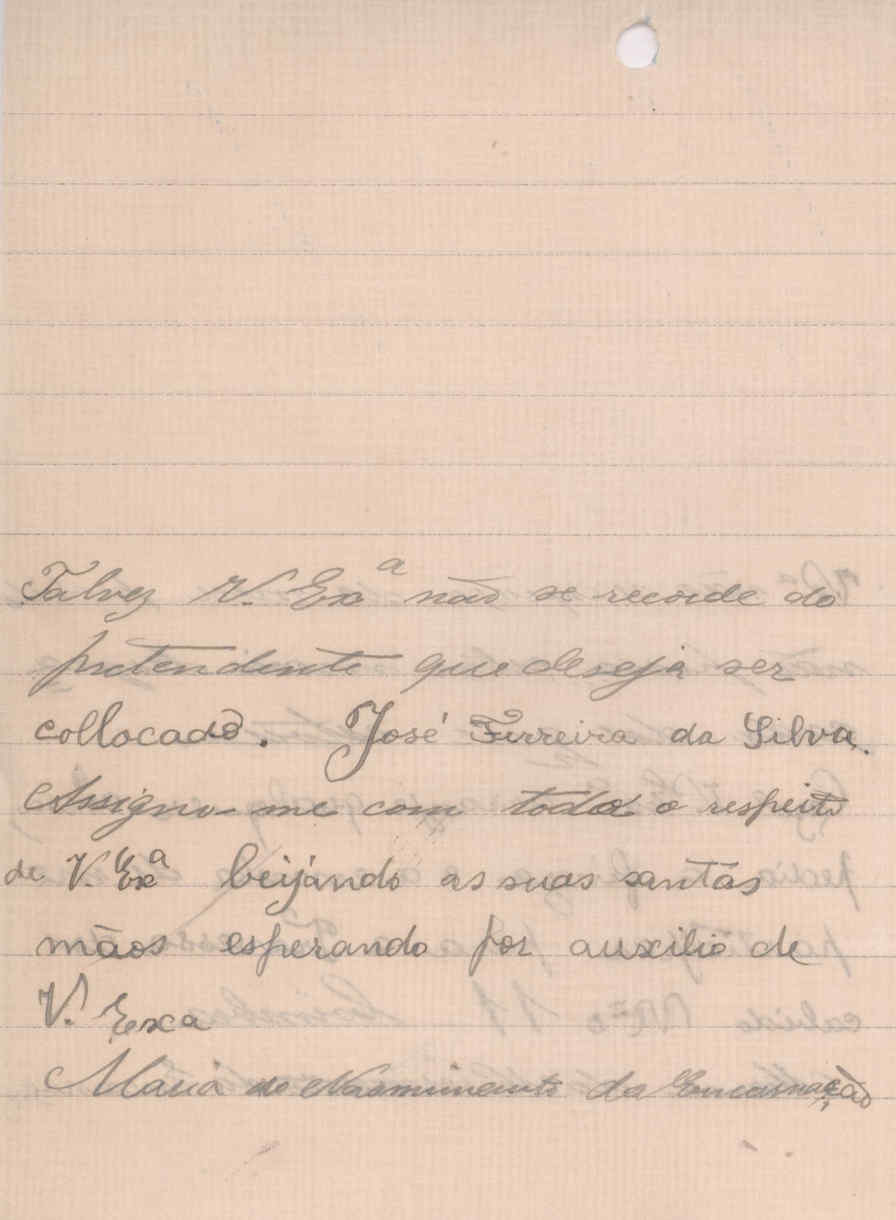 Talvez V. Exª não se recorde do
pretendente que deseja ser
collocado. José Ferreira da Silva.
Assigno-me com todo o respeito
de V. Exª beijando as suas santas
mãos esperando por auxilio de
V. Exca
Maria do Nasmimento da Encarnação